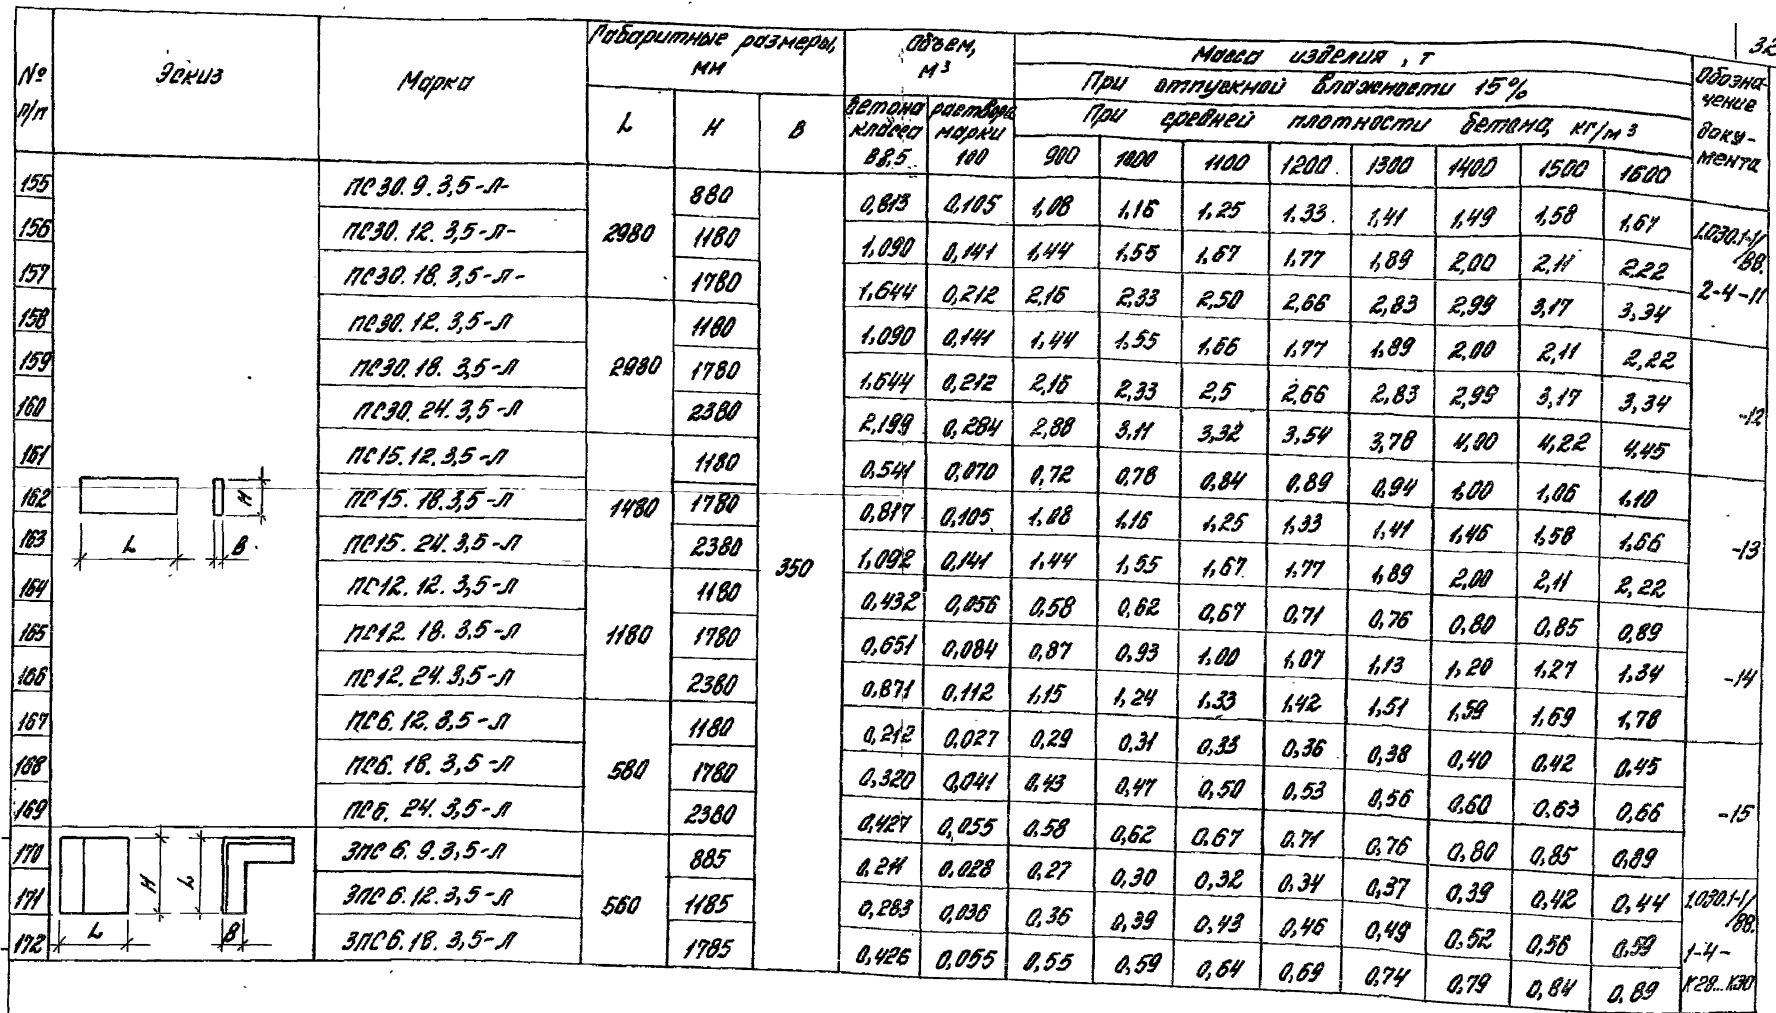 32
№ п/п Эскиз Марка Габаритные размеры, мм Объем, м³ Масса изделия, т Обозначение документа
При отпускной влажности 15%
L H B бетона класса В8,5 раствора марки 100 При средней плотности бетона, кг/м³
900 1000 1100 1200 1300 1400 1500 1600
155 ПС30.9.3,5-Л- 2980 880 350 0,813 0,105 1,08 1,16 1,25 1.33 1,41 1,49 1,58 1,67 1.030.1-1/88. 2-4-11
156 ПС30.12.3,5-Л- 1180 1,090 0,141 1,44 1,55 1,67 1,77 1,89 2,00 2,11 2,22
157 ПС30.18.3,5-Л- 1780 1,644 0,212 2,16 2,33 2,50 2,66 2,83 2,99 3,17 3,34
158 ПС30.12.3,5-Л 2980 1180 1,090 0,141 1,44 1,55 1,66 1,77 1,89 2,00 2,11 2,22 -12
159 ПС30.18.3,5-Л 1780 1,644 0,212 2,16 2,33 2,5 2,66 2,83 2,99 3,17 3,34
160 ПС30.24.3,5-Л 2380 2,199 0,284 2,88 3,11 3,32 3,54 3,78 4,00 4,22 4,45
161 ПС15.12.3,5-Л 1480 1180 0,541 0,070 0,72 0,78 0,84 0,89 0,94 1,00 1,06 1,10 -13
162 ПС15.18.3,5-Л 1780 0,817 0,105 1,08 1,16 1,25 1,33 1,41 1,46 1,58 1,66
163 ПС15.24.3,5-Л 2380 1,092 0,141 1,44 1,55 1,67 1,77 1,89 2,00 2,11 2,22
164 ПС12.12.3,5-Л 1180 1180 0,432 0,056 0,58 0,62 0,67 0,71 0,76 0,80 0,85 0,89 -14
165 ПС12.18.3,5-Л 1780 0,651 0,084 0,87 0,93 1,00 1,07 1,13 1,20 1,27 1,34
166 ПС12.24.3,5-Л 2380 0,871 0,112 1,15 1,24 1,33 1,42 1,51 1,59 1,69 1,78
167 ПС6.12.3,5-Л 580 1180 0,212 0,027 0,29 0,31 0,33 0,36 0,38 0,40 0,42 0,45 -15
168 ПС6.18.3,5-Л 1780 0,320 0,041 0,43 0,47 0,50 0,53 0,56 0,60 0,63 0,66
169 ПС6.24.3,5-Л 2380 0,427 0,055 0,58 0,62 0,67 0,71 0,76 0,80 0,85 0,89
L B H
170 3ПС6.9.3,5-Л 560 885 0,211 0,028 0,27 0,30 0,32 0,34 0,37 0,39 0,42 0,44 1.030.1-1/88. 1-4-К28...К30
171 3ПС6.12.3,5-Л 1185 0,283 0,036 0,36 0,39 0,43 0,46 0,49 0,52 0,56 0,59
172 3ПС6.18.3,5-Л 1785 0,426 0,055 0,55 0,59 0,64 0,69 0,74 0,79 0,84 0,89
L H L B